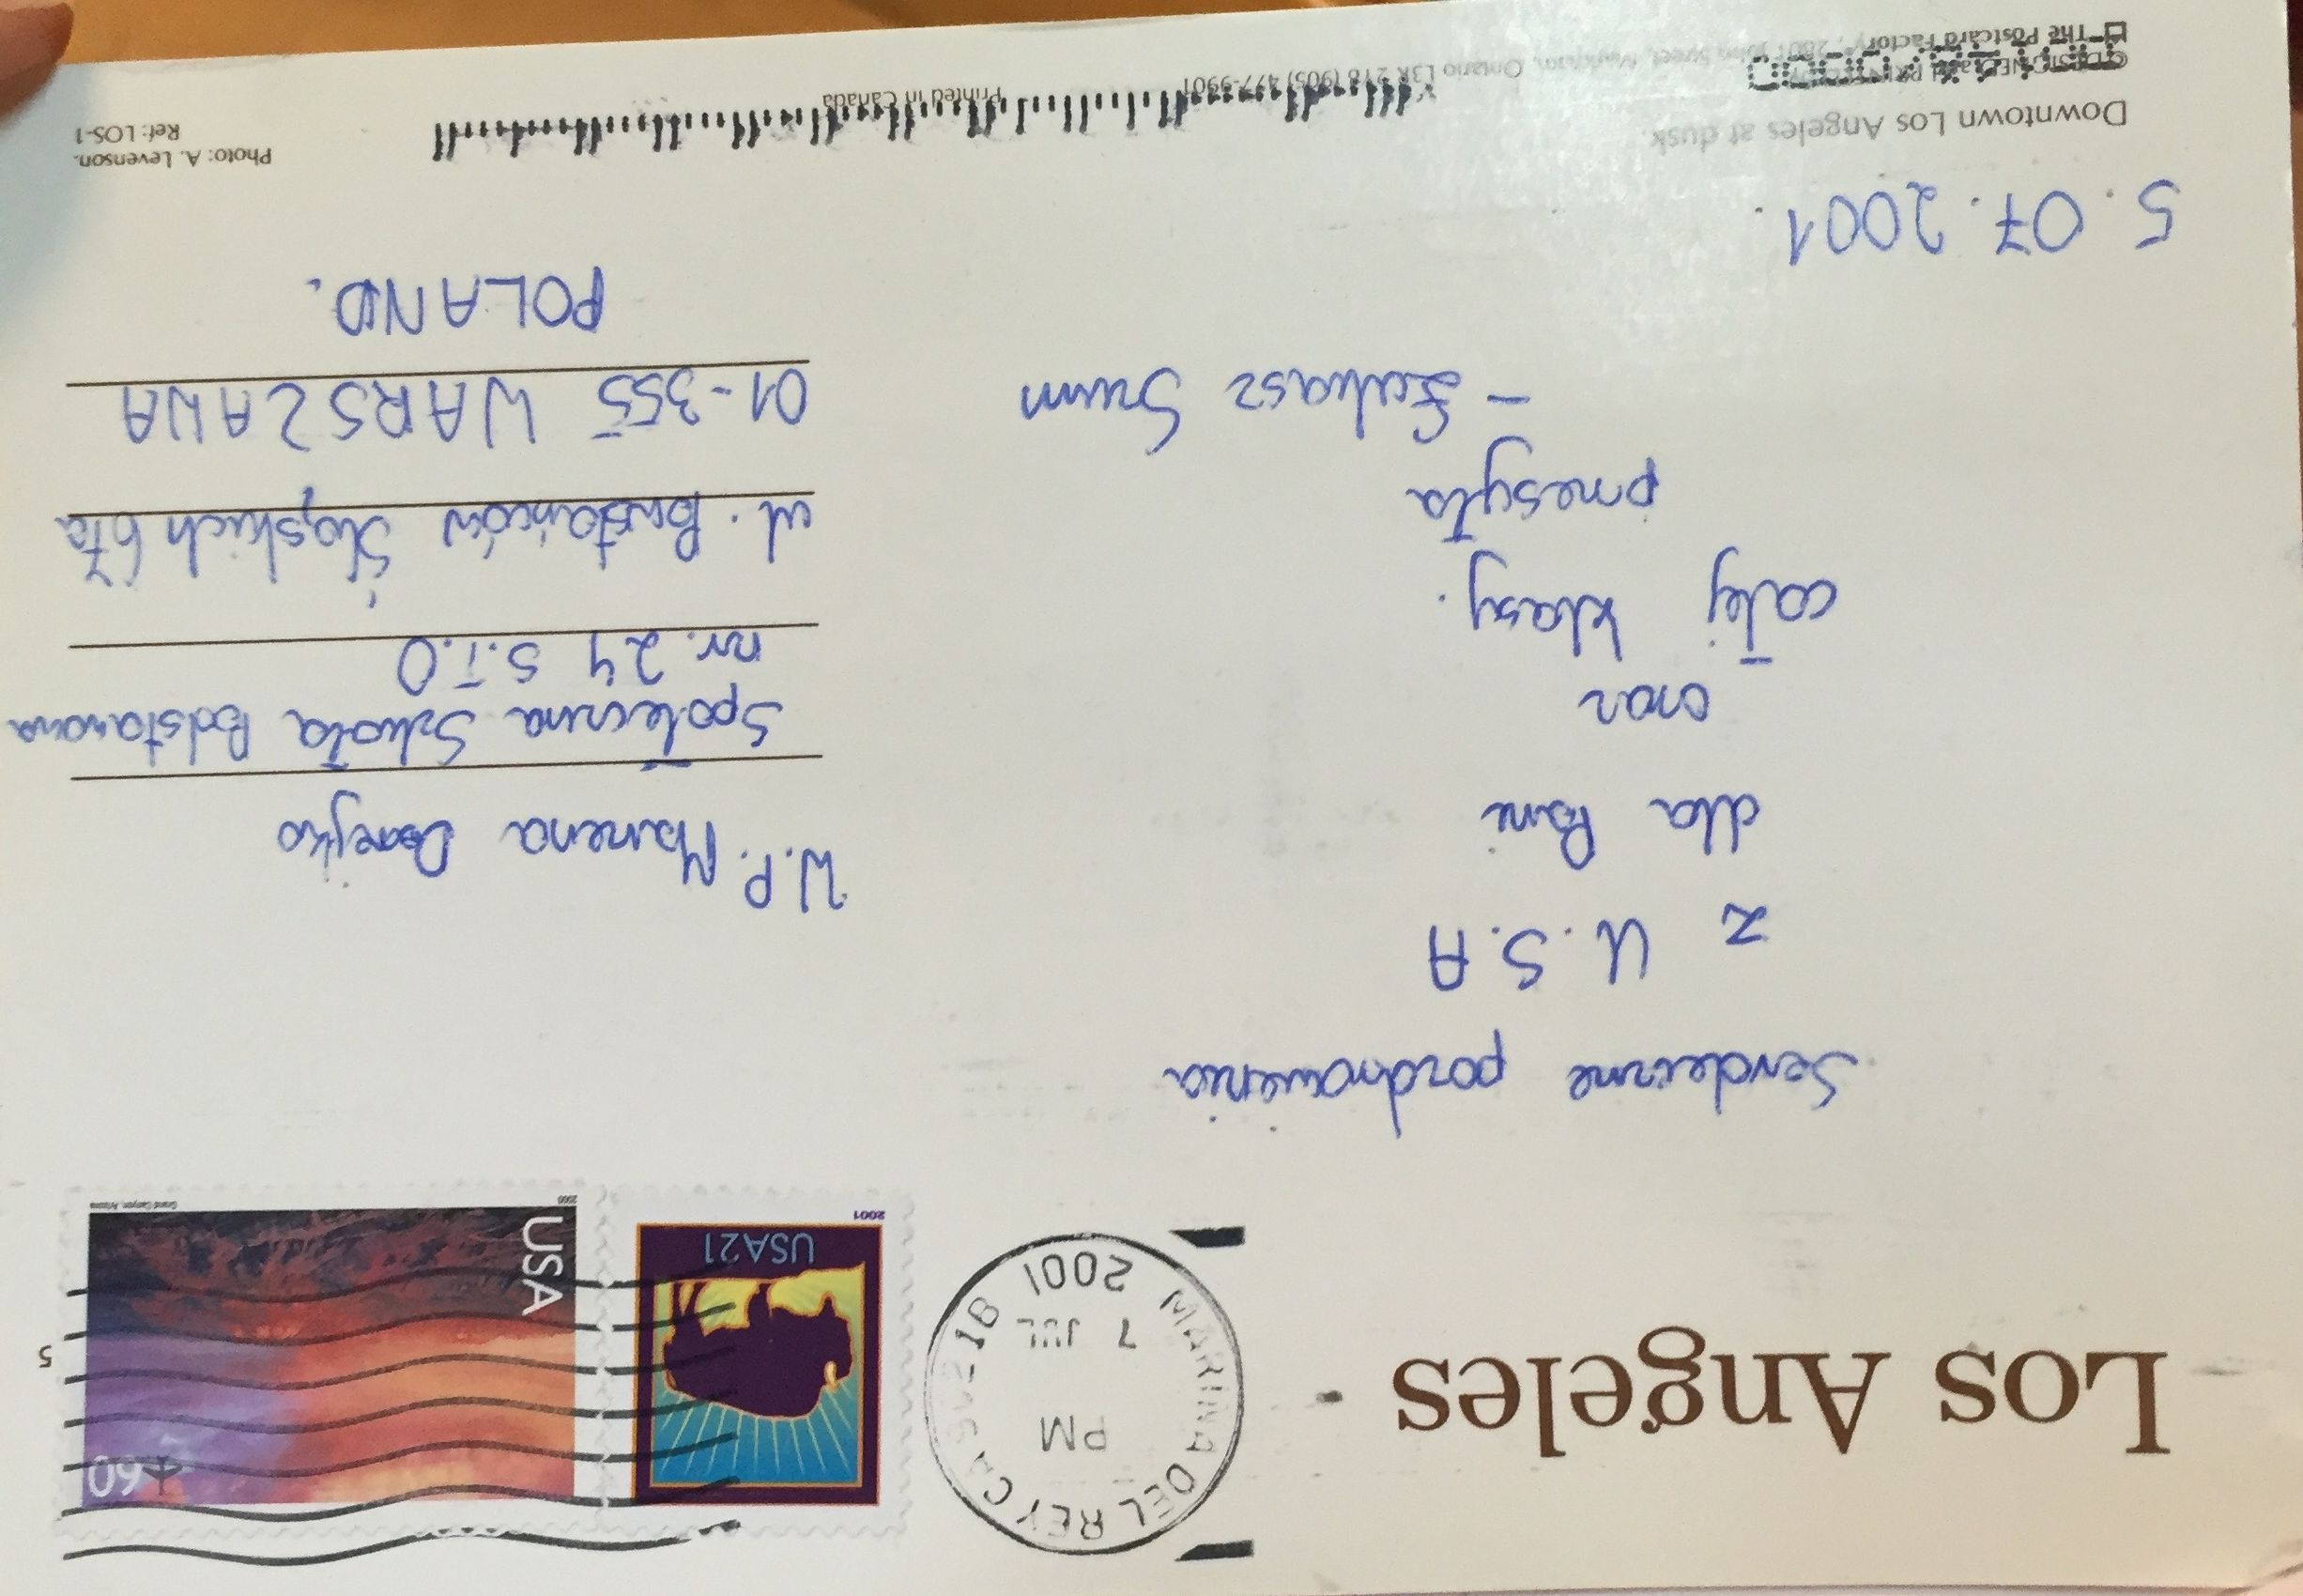 Los Angeles
MARINA DEL REY CA
PM
7 JUL
2001
USA 21
2001
60
USA
2000
Grand Canyon, Arizona
5
Serdeczne pozdrowienia
z U.S.A
dla Pani
oraz
całej klasy.
przesyła
- Łukasz
5.07.2001.
W.P. Marzena
Społeczna Szkoła Podstawowa
nr. 24 S.T.O
ul. Powstańców Śląskich 67a
01-355 WARSZAWA
POLAND.
Downtown Los Angeles at dusk.
The Postcard Factory
Ontario L3R 2T8 (905) 477-9901
Printed in Canada
Photo: A. Levenson.
Ref: LOS-1